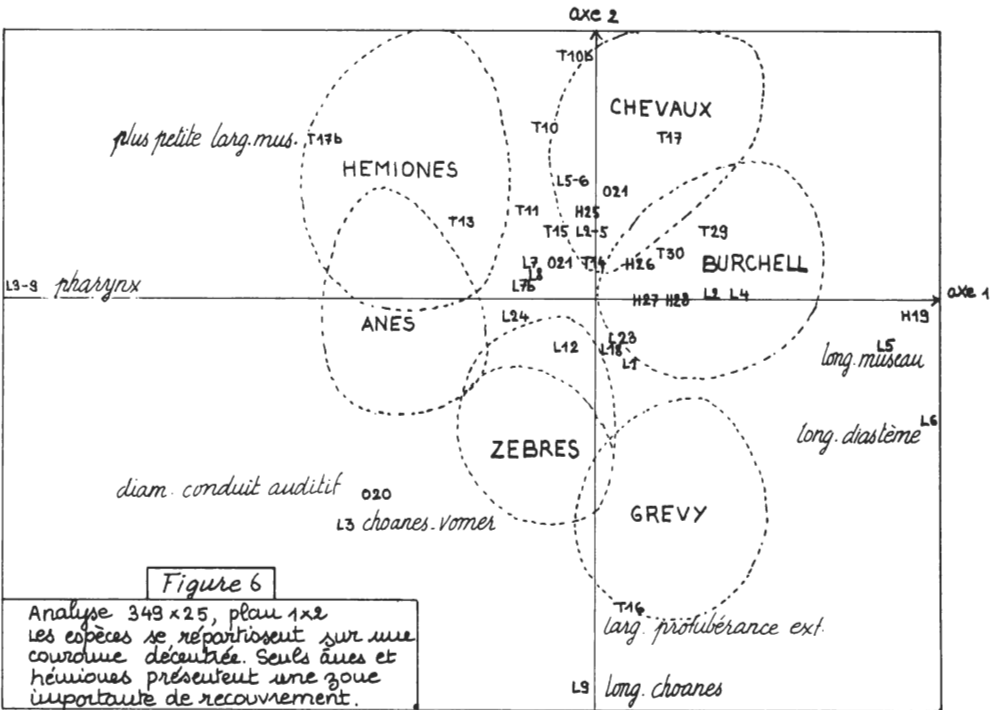 axe 2
T10b
CHEVAUX
T10
T17
plus petite larg. mus. T17b
HEMIONES
L5-6
O21
T11
H25
T13
T15 L2-5
T29
T30
L7 O21 T14 H26
BURCHELL
L8
L7b
L3-9 pharynx
H27 H28 L2 L4
axe 1
H19
L24
ANES
L23
L12 L18
L1
L5
long. museau
L6
long. diastème
ZEBRES
diam. conduit auditif O20
L3 choanes-vomer
GREVY
T16
larg. protubérance ext.
L9 long. choanes
Figure 6
Analyse 349 x 25, plan 1x2
Les espèces se répartissent sur une
couronne décentrée. Seuls ânes et
hémiones présentent une zone
importante de recouvrement.